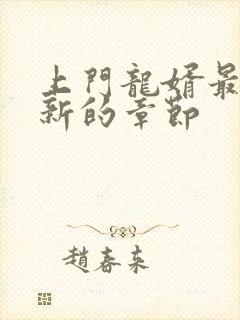 上門龍婿最
新的章節
趙春来